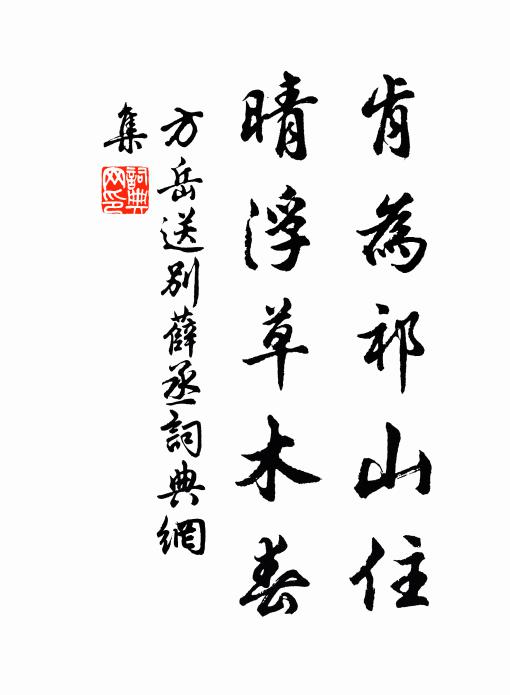 肯為祁山住
晴浮草木春
方岳送别薛丞詞典網
集
詞典网印